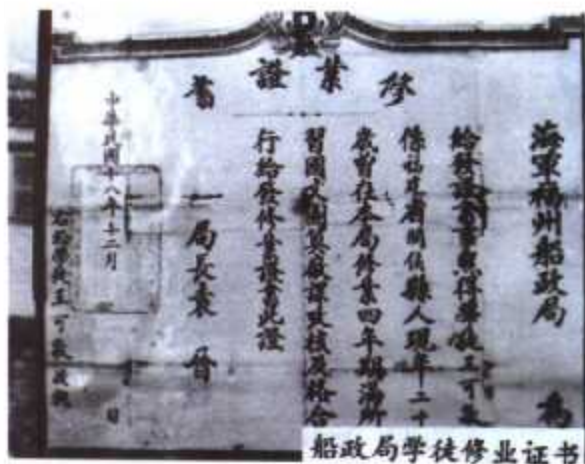 修業證書
海軍福州船政局 為
給發證書事照得學徒王可
係福建省閩侯縣人現年二十
歲曾往本局修業四年期滿所
習國文開算設課考核及格合
行給發修業證書此證
局長袁晉
中華民國十八年十二月 日
右給學徒王可 收執
船政局学徒修业证书